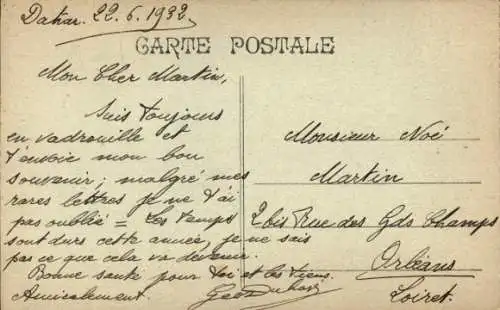 Dakar 22.6.1932
CARTE POSTALE
Mon Cher Martin,
Suis toujours
en vadrouille et
t'envoie mon bon
souvenir; malgré mes
rares lettres je ne t'ai
pas oublié = Les temps
sont durs cette année, je ne sais
pas ce que cela va devenir.
Bonne santé pour toi et les tiens.
Amicalement.
Monsieur Noé
Martin
2 bis Rue des Gds Champs
Orléans
Loiret.